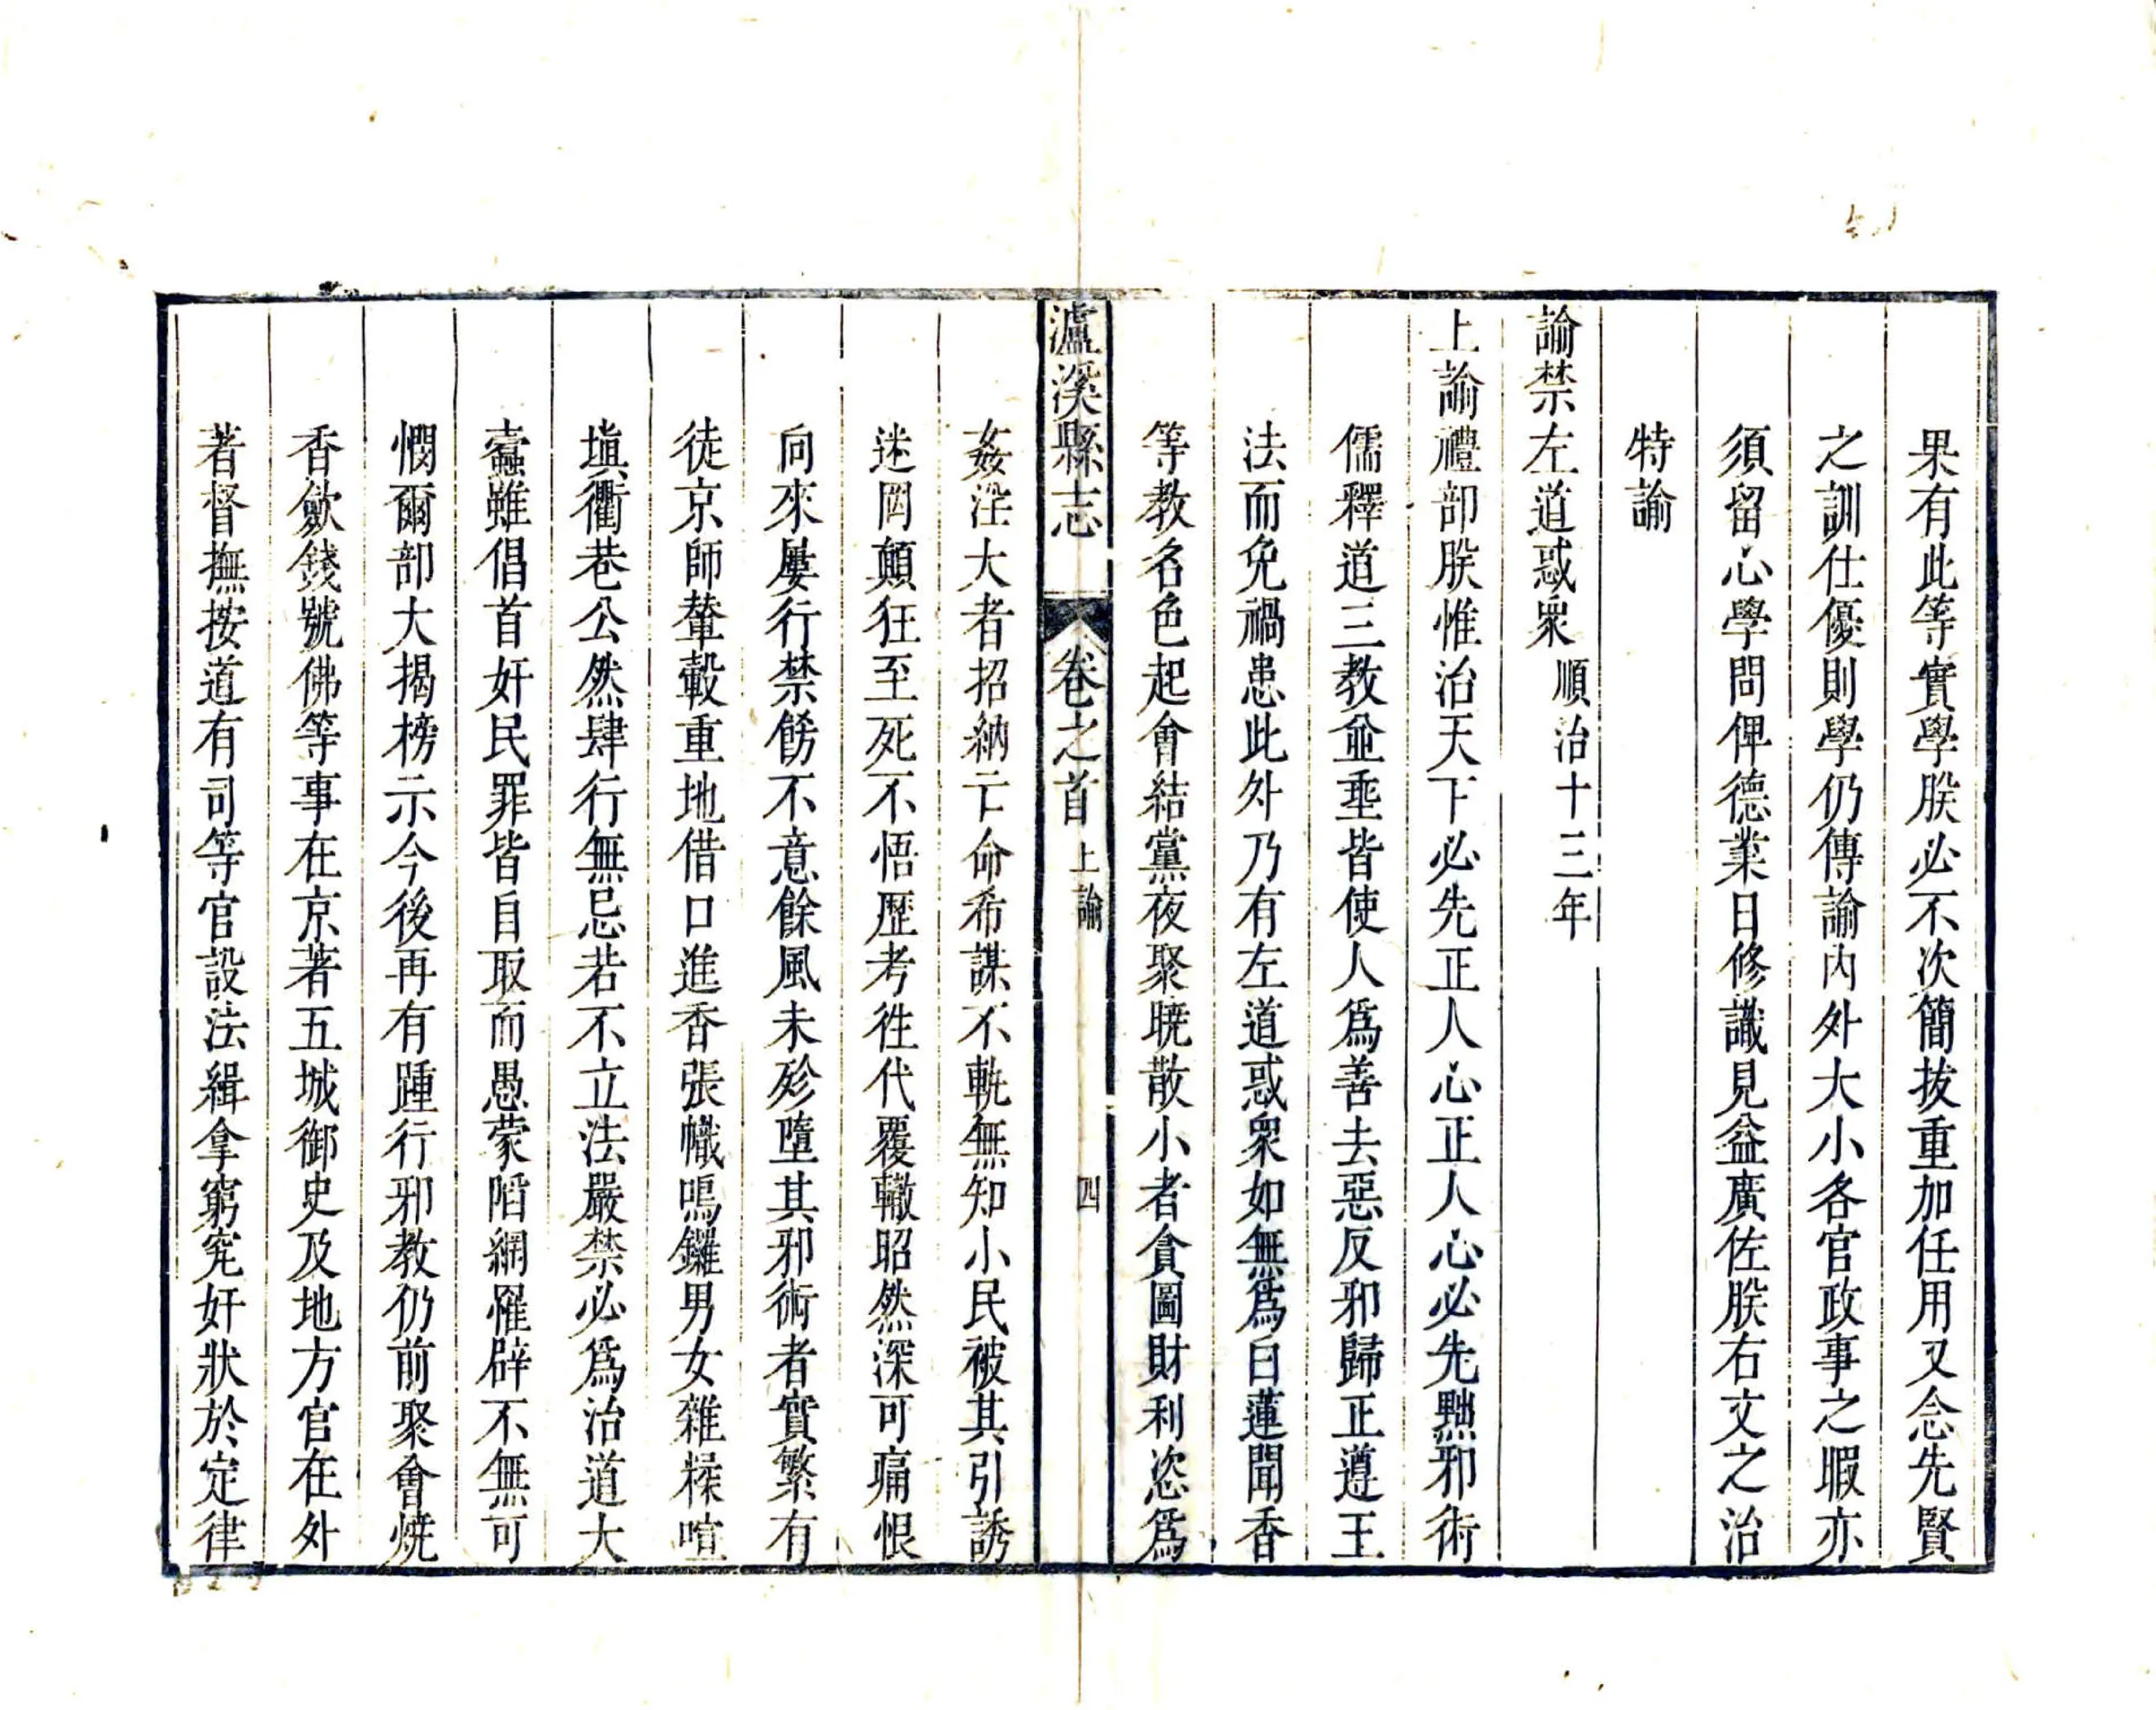 果有此等實學朕必不次簡拔重加任用又念先賢
之訓仕優則學仍傳諭內外大小各官政事之暇亦
須留心學問俾德業日修識見益廣佐朕右文之治
特諭
諭禁左道惑衆 順治十三年
上諭禮部朕惟治天下必先正人心正人心必先黜邪術
儒釋道三教並垂皆使人爲善去惡反邪歸正遵王
法而免禍患此外乃有左道惑衆如無爲白蓮聞香
等教名色起會結黨夜聚曉散小者貪圖財利恣爲
瀘溪縣志 卷之首 上諭 四
姦淫大者招納亡命希謀不軌無知小民被其引誘
迷罔顛狂至死不悟歷考徃代覆轍昭然深可痛恨
向來屢行禁飭不意餘風未殄墮其邪術者實繁有
徒京師輦轂重地借口進香張幟鳴鑼男女雜糅喧
塡衢巷公然肆行無忌若不立法嚴禁必爲治道大
蠹雖倡首奸民罪皆自取而愚蒙陷網罹辟不無可
憫爾部大揭榜示今後再有踵行邪教仍前聚會燒
香歛錢號佛等事在京著五城御史及地方官在外
著督撫按道有司等官設法緝拿窮究奸狀於定律